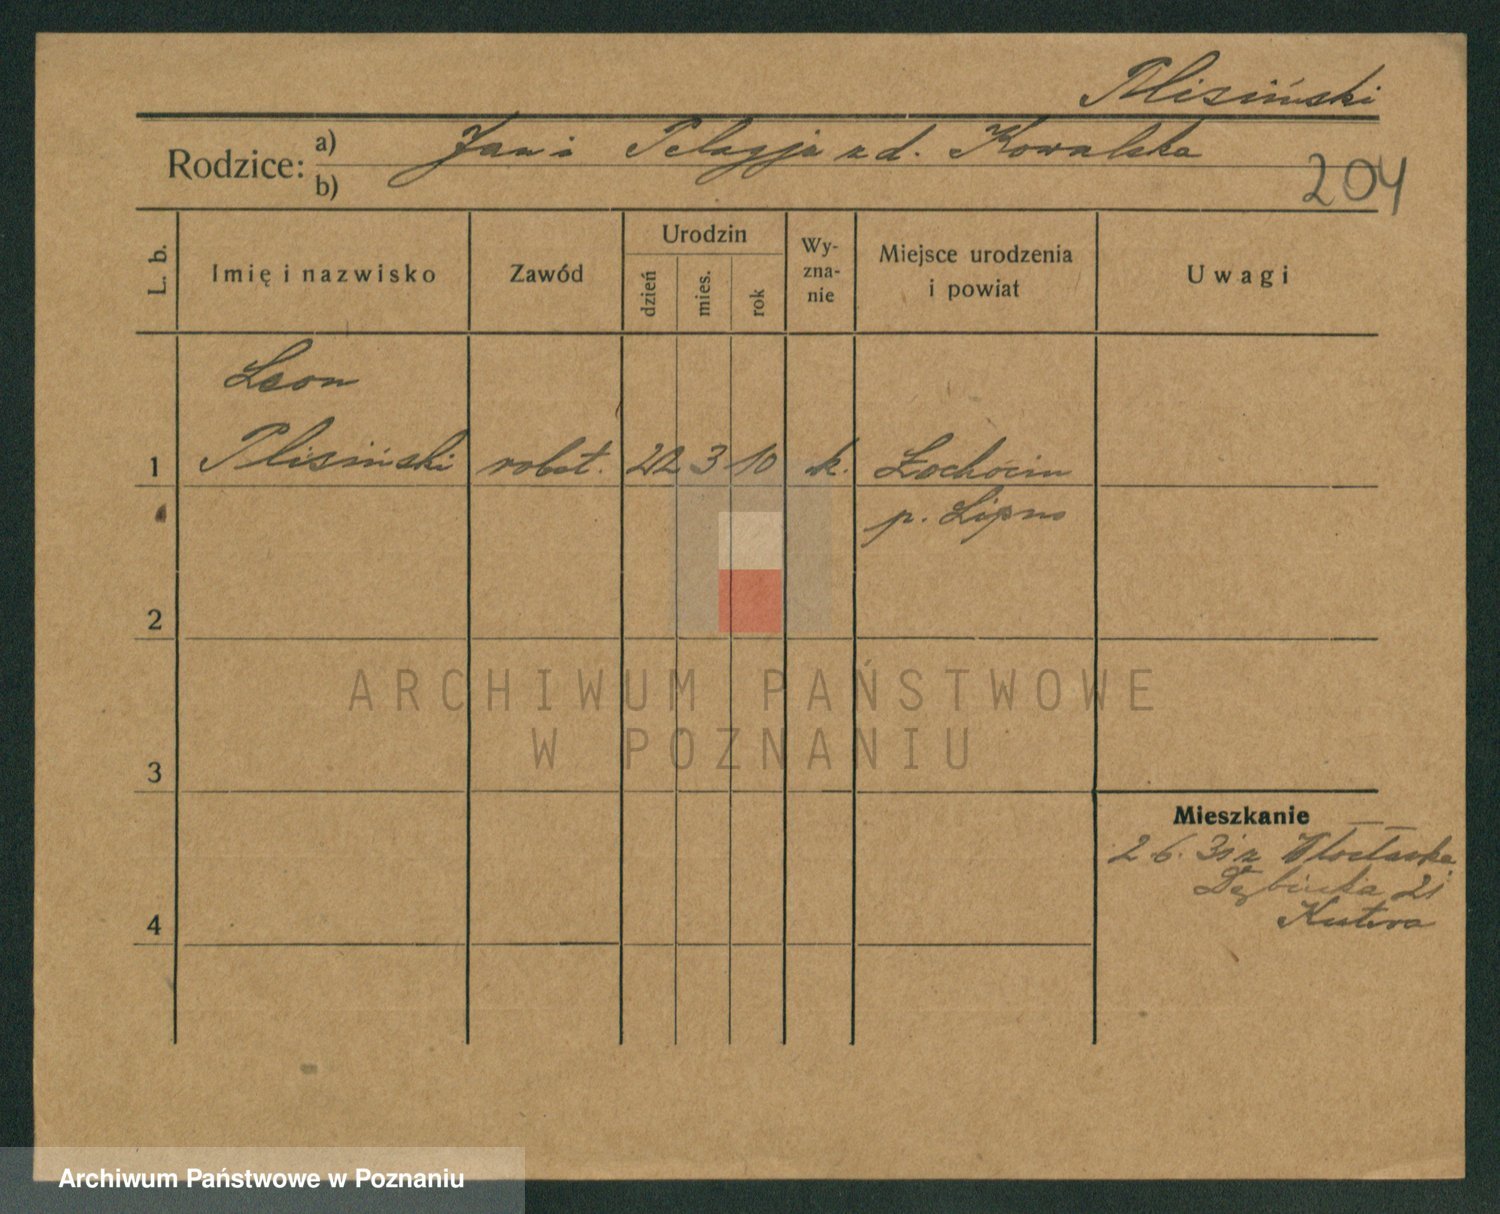 Plisiński
Rodzice: a) Jan i Pelagja z d. Kowalska
b)
204
L. b.
Imię i nazwisko
Zawód
Urodzin
dzień
mies.
rok
Wy-
zna-
nie
Miejsce urodzenia
i powiat
Uwagi
Leon
1 Plisiński robot. 22 3 10 k. Łochocin
p. Lipno
2
ARCHIWUM PAŃSTWOWE
W POZNANIU
3
4
Mieszkanie
2 6. 31 z Włocławka
Dębińska 21
Kutera
Archiwum Państwowe w Poznaniu